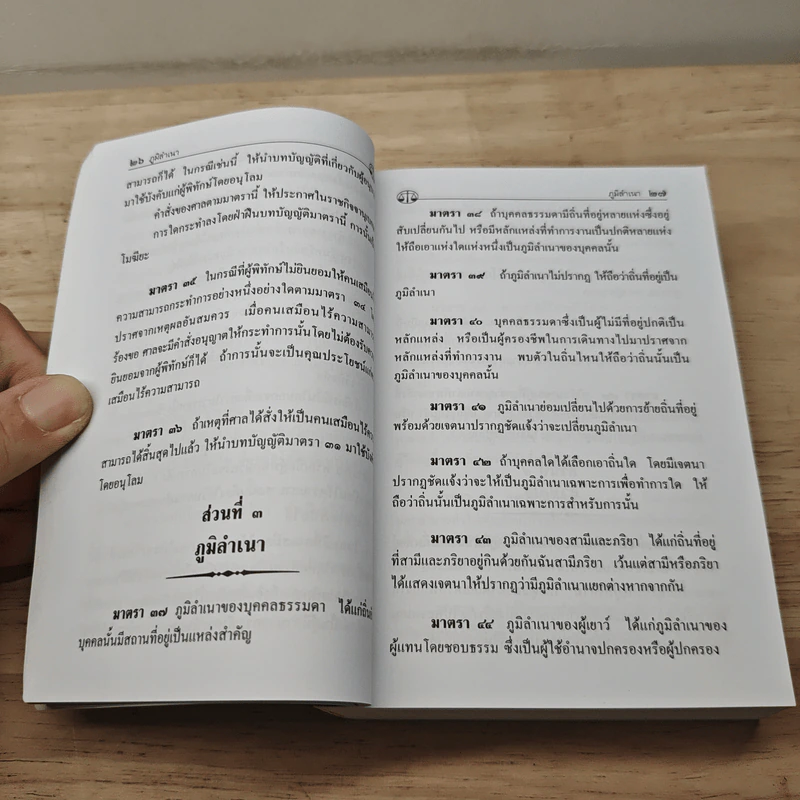 ๒๖ ภูมิลำเนา
สามารถก็ได้ ในกรณีเช่นนี้ ให้นำบทบัญญัติที่เกี่ยวกับ
มาใช้บังคับแก่ผู้พิทักษ์โดยอนุโลม
คำสั่งของศาลตามมาตรานี้ ให้ประกาศใน
การใดกระทำลงโดยฝ่าฝืนบทบัญญัติมาตรานี้ การนั้น
โมฆียะ
มาตรา ๓๕ ในกรณีที่ผู้พิทักษ์ไม่ยินยอมให้คนเสมือน
ความสามารถกระทำการอย่างหนึ่งอย่างใดตามมาตรา ๓๔
ปราศจากเหตุผลอันสมควร เมื่อคนเสมือนไร้ความ
ร้องขอ ศาลจะมีคำสั่งอนุญาตให้กระทำการนั้นโดยไม่ต้องรับ
ยินยอมจากผู้พิทักษ์ก็ได้ ถ้าการนั้นจะเป็นคุณประโยชน์
เสมือนไร้ความสามารถ
มาตรา ๓๖ ถ้าเหตุที่ศาลได้สั่งให้เป็นคนเสมือนไร้
สามารถได้สิ้นสุดไปแล้ว ให้นำบทบัญญัติมาตรา ๓๑ มาใช้
โดยอนุโลม
ส่วนที่ ๓
ภูมิลำเนา
มาตรา ๓๗ ภูมิลำเนาของบุคคลธรรมดา ได้แก่ถิ่น
บุคคลนั้นมีสถานที่อยู่เป็นแหล่งสำคัญ
ภูมิลำเนา ๒๗
มาตรา ๓๘ ถ้าบุคคลธรรมดามีถิ่นที่อยู่หลายแห่งซึ่งอยู่
สับเปลี่ยนกันไป หรือมีหลักแหล่งที่ทำการงานเป็นปกติหลายแห่ง
ให้ถือเอาแห่งใดแห่งหนึ่งเป็นภูมิลำเนาของบุคคลนั้น
มาตรา ๓๙ ถ้าภูมิลำเนาไม่ปรากฏ ให้ถือว่าถิ่นที่อยู่เป็น
ภูมิลำเนา
มาตรา ๔๐ บุคคลธรรมดาซึ่งเป็นผู้ไม่มีที่อยู่ปกติเป็น
หลักแหล่ง หรือเป็นผู้ครองชีพในการเดินทางไปมาปราศจาก
หลักแหล่งที่ทำการงาน พบตัวในถิ่นไหนให้ถือว่าถิ่นนั้นเป็น
ภูมิลำเนาของบุคคลนั้น
มาตรา ๔๑ ภูมิลำเนาย่อมเปลี่ยนไปด้วยการย้ายถิ่นที่อยู่
พร้อมด้วยเจตนาปรากฏชัดแจ้งว่าจะเปลี่ยนภูมิลำเนา
มาตรา ๔๒ ถ้าบุคคลใดได้เลือกเอาถิ่นใด โดยมีเจตนา
ปรากฏชัดแจ้งว่าจะให้เป็นภูมิลำเนาเฉพาะการเพื่อทำการใด ให้
ถือว่าถิ่นนั้นเป็นภูมิลำเนาเฉพาะการสำหรับการนั้น
มาตรา ๔๓ ภูมิลำเนาของสามีและภริยา ได้แก่ถิ่นที่อยู่
ที่สามีและภริยาอยู่กินด้วยกันฉันสามีภริยา เว้นแต่สามีหรือภริยา
ได้แสดงเจตนาให้ปรากฏว่ามีภูมิลำเนาแยกต่างหากจากกัน
มาตรา ๔๔ ภูมิลำเนาของผู้เยาว์ ได้แก่ภูมิลำเนาของ
ผู้แทนโดยชอบธรรม ซึ่งเป็นผู้ใช้อำนาจปกครองหรือผู้ปกครอง